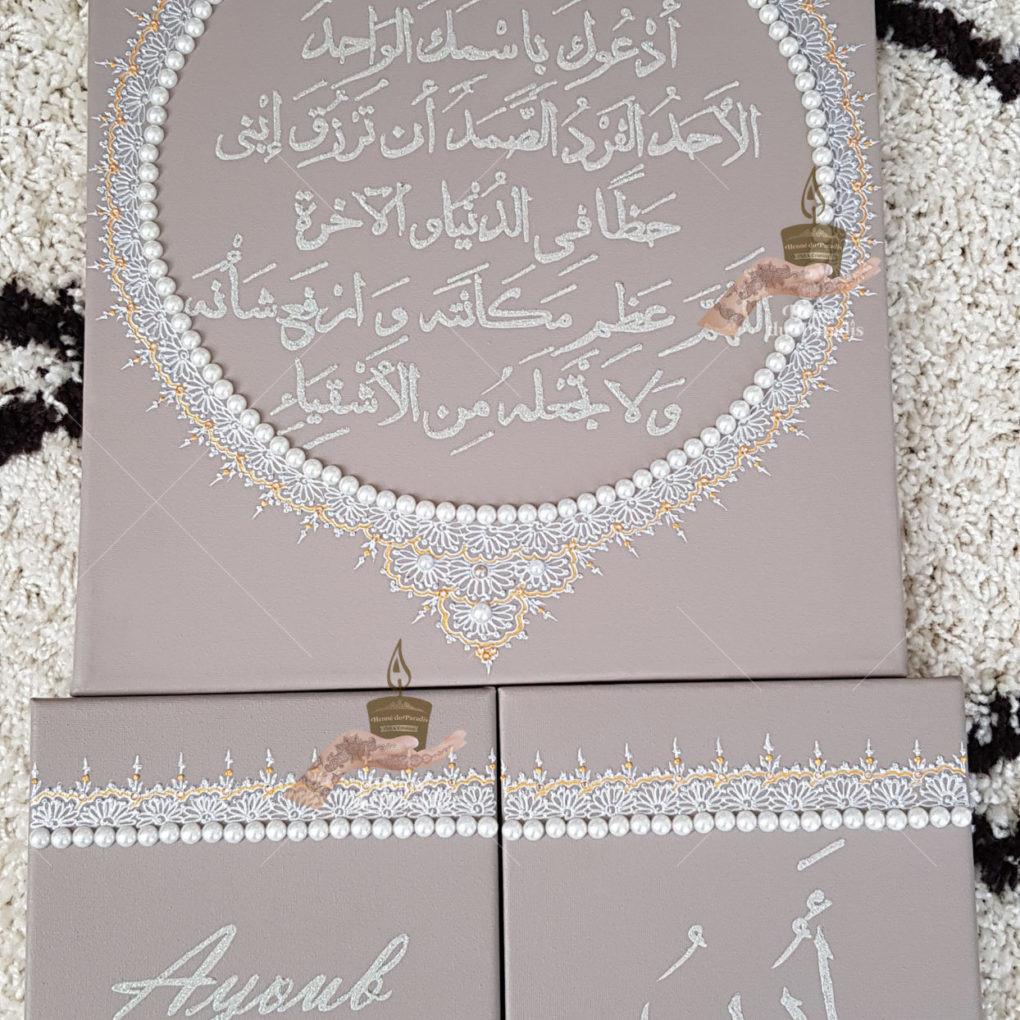 أَدْعُوكَ بِاسْمِكَ الوَاحِدَ
الأَحَدُ الفَرْدُ الصَّمَدَ أَن تَرْزُقَ إبْنِى
حَظًا فِى الدُنْيَا وَ الآخرة
اللهُمَّ عَظِمِ مَكَانَتَه وَ ارْفِع شَأْنَه
وَلَا تَجْعَلَه مِن الأَشْقِيَاءِ
Henné du Paradis
du Paradis
Henné du Paradis
Ayoub